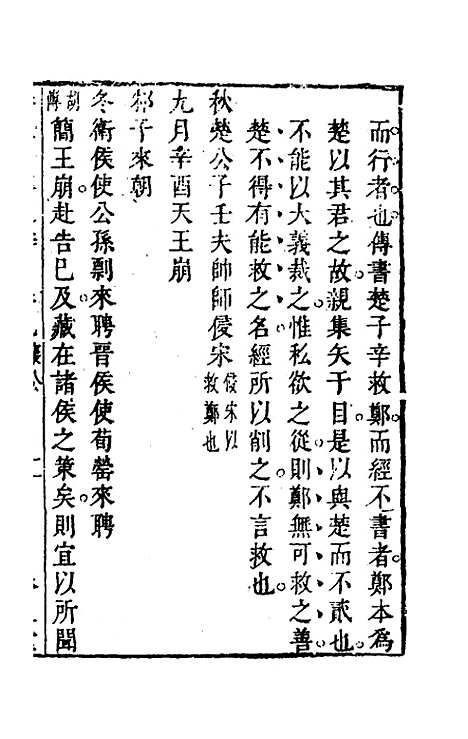 而行者也傳書楚子辛救鄭而經不書者鄭本爲
楚以其君之故親集矢于目是以與楚而不貳也
不能以大義裁之惟私欲之從則鄭無可救之善
楚不得有能救之名經所以削之不言救也
秋楚公子壬夫帥師侵宋侵宋以救鄭也
九月辛酉天王崩
邾子來朝
冬衛侯使公孫剽來聘晉侯使荀罃來聘
胡傳簡王崩赴告已及藏在諸侯之策矣則宜以所聞